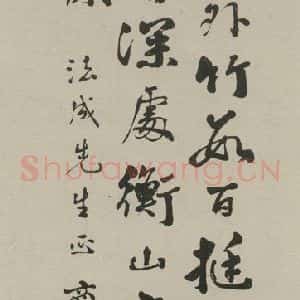 外竹數百挺
深處衡山
法成先生正
Shufawang.CN